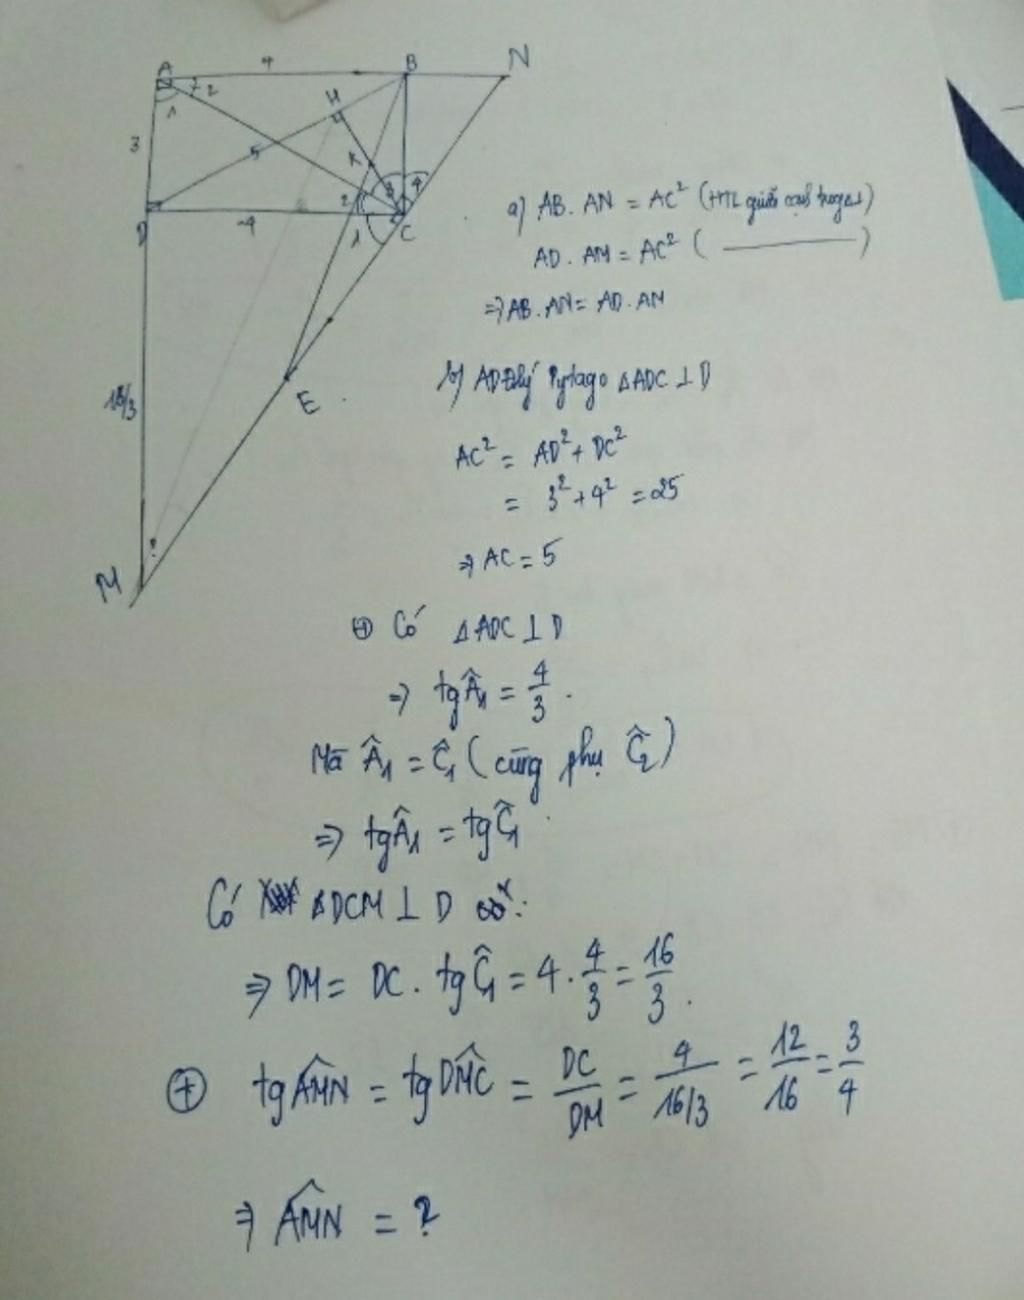 A 4 B N
2
1
H
3
5
K
2 3 4
D 4 C
1
E
16/3
M ?
a) AB. AN = AC² (HTL giữa cạnh
AD. AM = AC² ( ——— )
⇒ AB. AN = AD. AN
b) Pytago △ADC ⊥ D
AC² = AD² + DC²
= 3² + 4² = 25
⇒ AC = 5
⊕ Có △ADC ⊥ D
⇒ tgÂ₁ = 4/3.
Mà Â₁ = Ĉ₁ (cùng phụ Ĉ₂)
⇒ tgÂ₁ = tgĈ₁
Có △DCM ⊥ D
⇒ DM = DC. tgĈ₁ = 4. 4/3 = 16/3.
⊕ tg AMN̂ = tg DMĈ = DC/DM = 4/(16/3) = 12/16 = 3/4
⇒ AMN̂ = ?